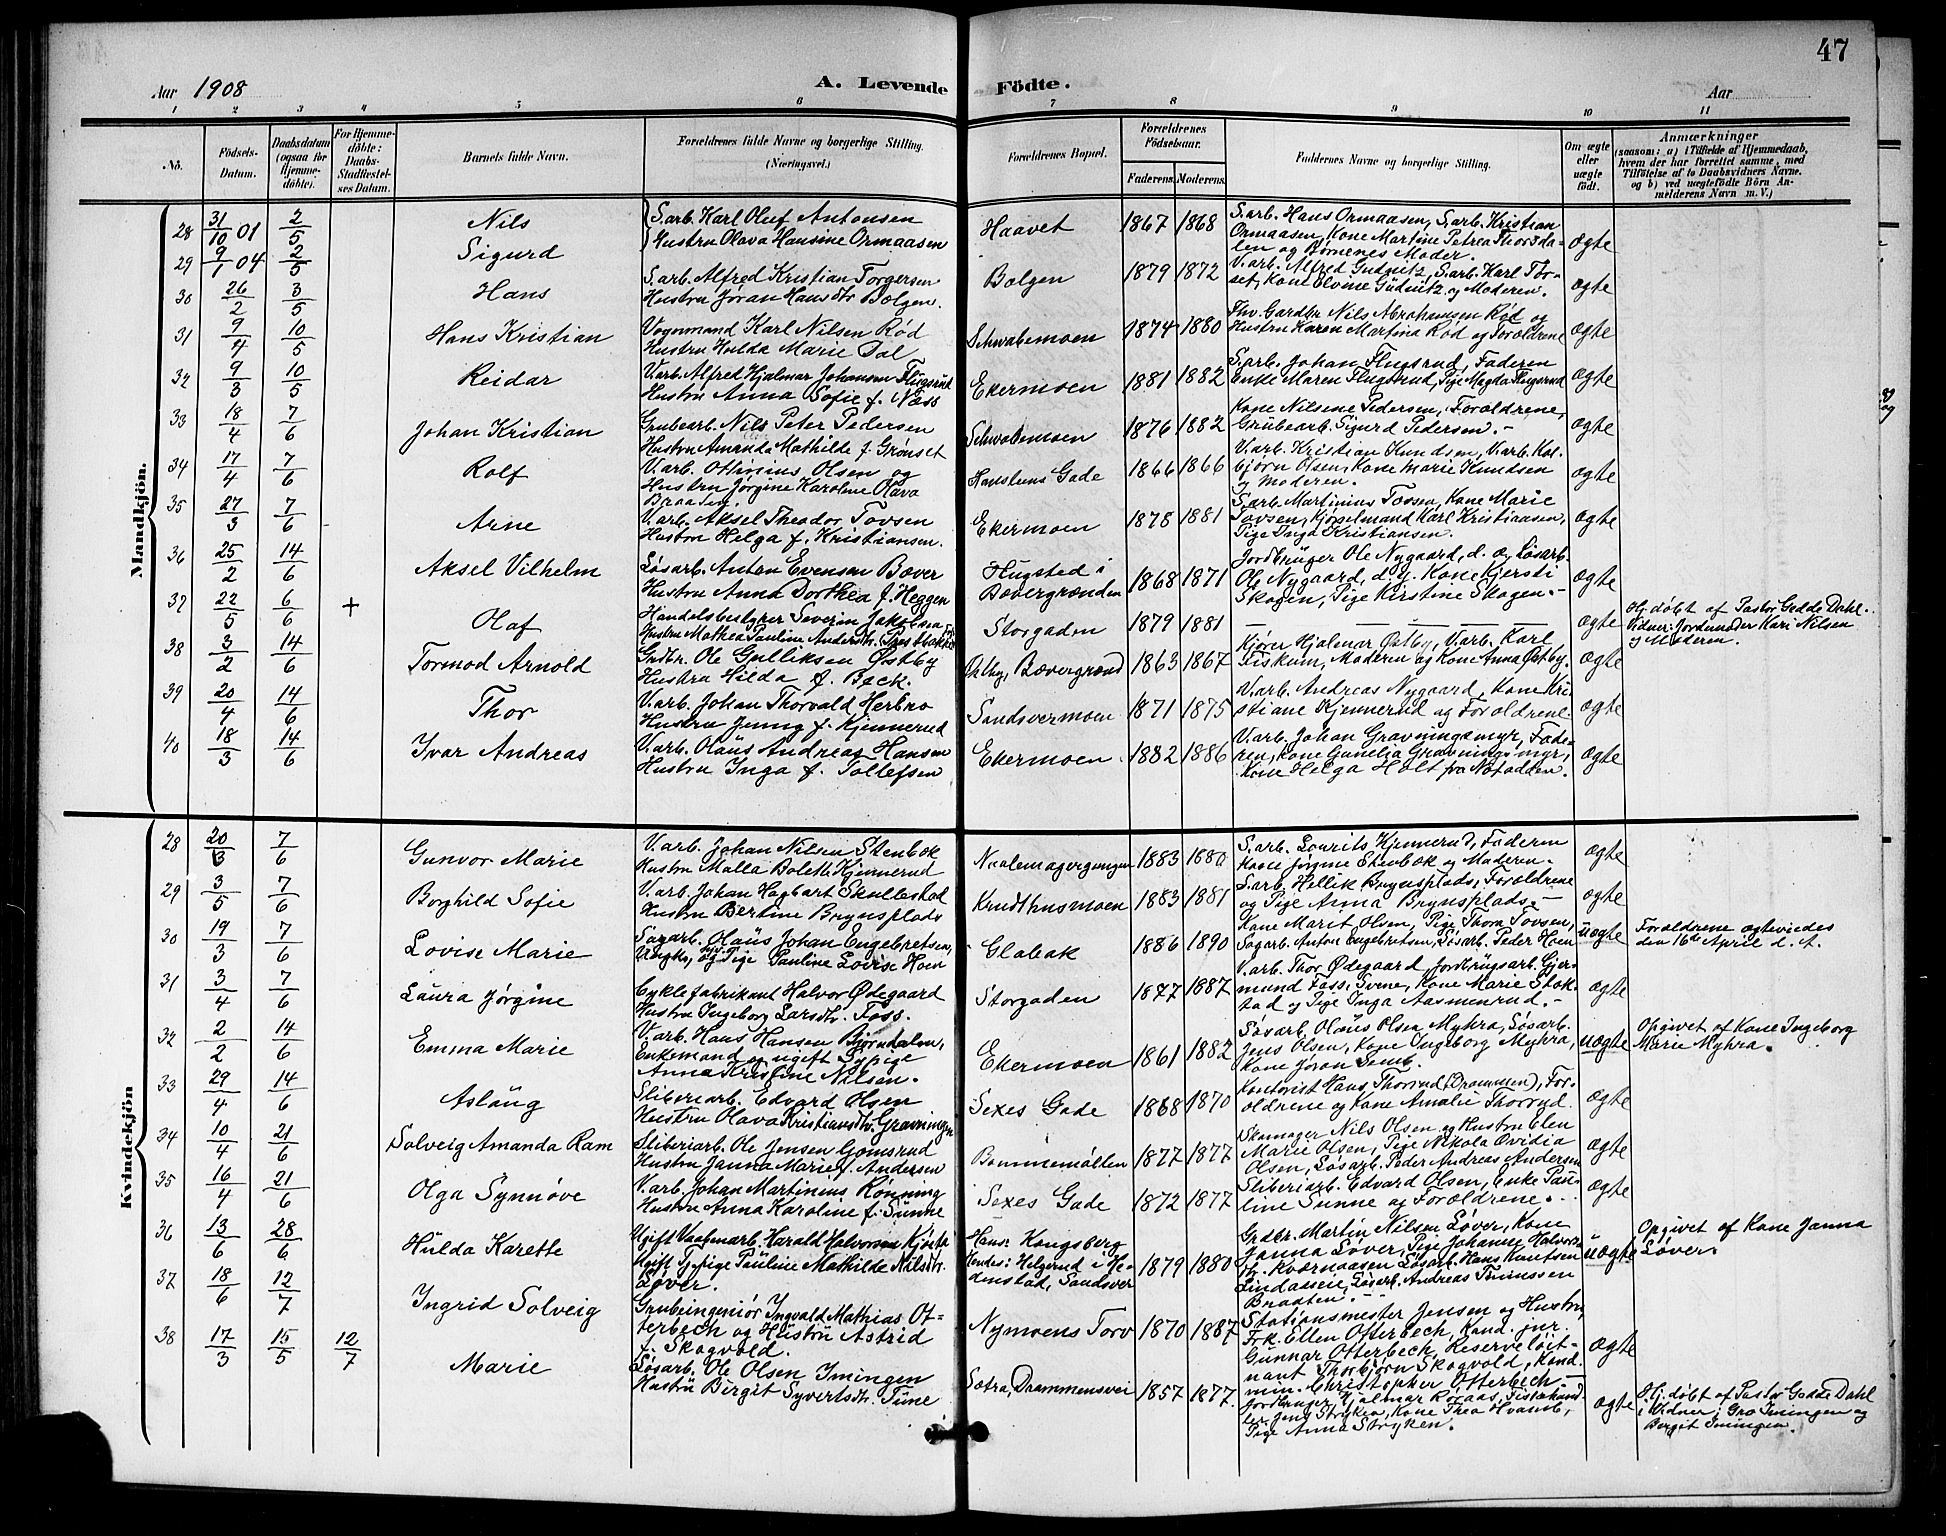 47
Aar 1908
A. Levende Födte.
Aar
1 2 3 4 5 6 7 8 9 10 11
No.
Födsels-Datum.
Daabsdatum (ogsaa for Hjemme-döbte).
For Hjemme-döbte: Daabs-Stadfæstel-ses Datum.
Barnets fulde Navn.
Forældrenes fulde Navne og borgerlige Stilling. (Næringsvei.)
Forældrenes Bopæl.
Forældrenes Födselsaar.
Faderens. Moderens.
Faddernes Navne og borgerlige Stilling.
Om ægte eller uægte født.
Anmærkninger
(saasom: a) i Tilfælde af Hjemmedaab, hvem der har forrettet samme, med Tilföielse af to Daabsvidners Navne. og b) ved uægtefödte Börn An-melderens Navn m. V.)
Mandkjön.
28 31/10 01 2/5 Nils
S.arb. Karl Oluf Antonsen
Hustru Olava Hansine Ormaasen
Haavet 1867 1868
S.arb. Hans Ormaasen, S.arb. Kristian
Ormaasen, Kone Martine Petrea Thorsda-
len og Børnenes Moder.
ægte
29 9/1 04 2/5 Sigurd
30 26/2 3/5 Hans
S.arb. Alfred Kristian Torgersen
Hustru Jøran Hansdtr Bolgen.
Bolgen 1879 1872
V.arb. Alfred Gudnitz, S.arb. Karl Tor-
set, Kone Elvine Gudnitz og Moderen.
ægte
31 9/4 10/5 Hans Kristian
Vognmand Karl Nilsen Rød
Hustru Hulda Marie Dal
Schwabemoen 1874 1880
Fhv. Gardbr Nils Abrahamsen Rød og
Hustru Karen Martina Rød og Forældrene
ægte
32 9/3 10/5 Reidar
V.arb. Alfred Hjalmar Johansen Flugsrud
Hustru Anna Sofie f. Næss
Ekermoen 1881 1882
S.arb. Johan Flugsrud, Faderen
Enke Maren Flugsrud, Pige Magda Flugsrud
ægte
33 18/4 7/6 Johan Kristian
Grubearb. Nils Peter Pedersen
Hustru Amanda Mathilde f. Grønset
Schwabemoen 1876 1882
Kone Nilsine Pedersen, Forældrene,
Grubearb. Sigurd Pedersen.-
ægte
34 17/4 7/6 Rolf
V.arb. Ottinius Olsen og
Hustru Jørgine Karoline Olava
Braaten.
Hansteens Gade 1866 1866
V.arb. Kristian Knudsen, V.arb. Kol-
bjørn Olsen, Kone Marie Knudsen
og Moderen.
ægte
35 27/3 7/6 Arne
V.arb. Aksel Theodor Tovsen
Hustru Helga f. Kristiansen.
Ekermoen 1878 1881
S.arb. Martinius Tovsen, Kone Marie
Tovsen, Kjørselmand Karl Kristiansen,
Pige Inga Kristiansen.
ægte
36 25/2 14/6 Aksel Vilhelm
Løsarb. Anton Evensen Bæver
Hustru Anna Dorthea f. Heggen
Hugsted i
Bævergrænden 1868 1871
Jordbruger Ole Nygaard, d. æ, Løsarb.
Ole Nygaard, d.y. Kone Kjersti
Skogen, Pige Kirstine Skogen.-
ægte
37 22/5 6/6 + Olaf
Handelsbestyrer Severin Jakobsen
Hustru Mathea Pauline Andersdtr.
Storgaden 1879 1881
ægte
Hj.døbt af Pastor Gedde Dahl.
Vidner: Jordmoder Kari Nilsen
og Moderen.
38 3/2 14/6 Tormod Arnold
Grdbr. Ole Gulliksen Østby
Hustru Hilda f. Beck.
Østby, Bævergrend 1863 1867
Kjører Hjalmar Østby, V.arb. Karl
Fiskum, Moderen og Kone Anna Østby.
ægte
39 20/4 14/6 Thor
V.arb. Johan Thorvald Herbro
Hustru Jenny f. Kjennerud
Sandsværmoen 1871 1875
V.arb. Andreas Nygaard, Kone Kri-
stiane Kjennerud og Forældrene.
ægte
40 18/3 14/6 Ivar Andreas
V.arb. Olaus Andreas Hansen
Hustru Inga f. Tollefsen
Ekermoen. 1882 1886
V.arb. Johan Gravningsmyr, Fade-
ren, Kone Gunelia Gravningsmyr,
Kone Helga Holt fra Notodden.
ægte
Kvindekjön
28 20/3 7/6 Gunvor Marie
V.arb. Johan Nilsen Stenbok
Hustru Malla Bolette Kjennerud
Naalemagergangen 1883 1880
S.arb. Lourits Kjennerud, Faderen
Kone Jørgine Stenbok og Moderen.
ægte
29 3/5 7/6 Borghild Sofie
V.arb. Johan Hagbart Skullestad
Hustru Bertine Brynsplads
Krudthusmoen 1883 1881
S.arb. Hellik Brynsplads, Forældrene
og Pige Anna Brynsplads.-
ægte
30 19/3 7/6 Lovise Marie
Sagarb. Olaus Johan Engebretsen,
Ungk., og Pige Pauline Lovise Hoen
Glabak 1886 1890
Kone Marit Olsen, Pige Thora Tovsen,
Sagarb. Anton Engebretsen, Løsarb. Peder Hoen
uægte
Forældrene ægteviedes
den 16de April d. A.
31 3/4 7/6 Laura Jørgine
Cyklefabrikant Halvor Ødegaard
Hustru Ingeborg Larsdtr. Foss.
Storgaden 1877 1887
V.arb. Thor Ødegaard, Jordbrugsarb. Gjer-
mund Foss, Svene, Kone Marie Stok-
stad og Pige Inga Aasmundrud.-
ægte
32 2/2 14/6 Emma Marie
V.arb. Hans Hansen Bjørndalen,
Enkemand og ugift Sypige
Anna Kristine Nilsen.
Ekermoen 1861 1882
Løsarb. Olaus Olsen Myhra, Løsarb.
Jens Olsen, Kone Ingeborg Myhra,
Kone Jøran Semb.
uægte
Opgivet af Kone Ingeborg
Marie Myhra.
33 29/4 14/6 Aslaug
Sliberiarb. Edvard Olsen
Hustru Olava Kristiansdtr. Gravningen
Sexes Gade 1868 1870
Kontorist Hans Thorrud (Drammen), For-
ældrene og Kone Amalie Thorrud.
ægte
34 10/4 21/6 Solveig Amanda Ram
Sliberiarb. Ole Jensen Gomsrud
Hustru Janna Marie f. Andersen
Bommemøllen 1877 1877
Skomager Nils Olsen og Hustru Elen
Marie Olsen, Pige Nikola Ovidia
Olsen, Løsarb. Peder Andreas Andersen
ægte
35 16/4 21/6 Olga Synnøve
V.arb. Johan Martinius Rønning
Hustru Anna Karoline f. Sunne
Sexes Gade 1872 1877
Sliberiarb. Edvard Olsen, Enke Pau-
line Sunne og Forældrene.
ægte
36 13/6 28/6 Hulda Karette
Ugift Vaabenarb. Harald Halvorsen
Ugift Tj.pige Pauline Mathilde Nilsdtr.
Løver.
Hans: Kongsberg
Hendes: Helgerud i He-
denstad, Sandsvær 1879 1880
Grdbr. Martin Nilsen Løver, Kone
Janna Løver, Pige Johanne Halvors-
dtr. Kværnaasen Løsarb. Hans Knutsen
Lindaasen, Løsarb. Andreas
Braaten.-
uægte
Opgivet af Kone Janna
Løver.
37 18/6 12/7 Ingrid Solveig
Grubeingeniør Ingvald Mathias Ot-
terbech og Hustru Astrid
f. Skogvold.
Nymoens Torv 1870 1887
Stationsmester Jensen og Hustru,
Frk. Ellen Otterbech, Kand. jur.
Gunnar Otterbech, Reserveløit-
nant Thorbjørn Skogvold, Kand.
min. Christopher Otterbech.-
ægte
38 17/3 15/5 12/7 Marie
Løsarb. Ole Olsen Imingen
Hustru Birgit Syvertsdtr. Tune
Sætra, Drammensvei 1857 1877
Jordbruger Hjalmar Røraas, Fiskehand-
ler Jens Stryken, Kone Thea Hvamb,
Pige Anna Stryken.
ægte
Hj.døbt af Pastor Gedde Dahl
Vidner: Gro Imingen og
Bergit Imingen.